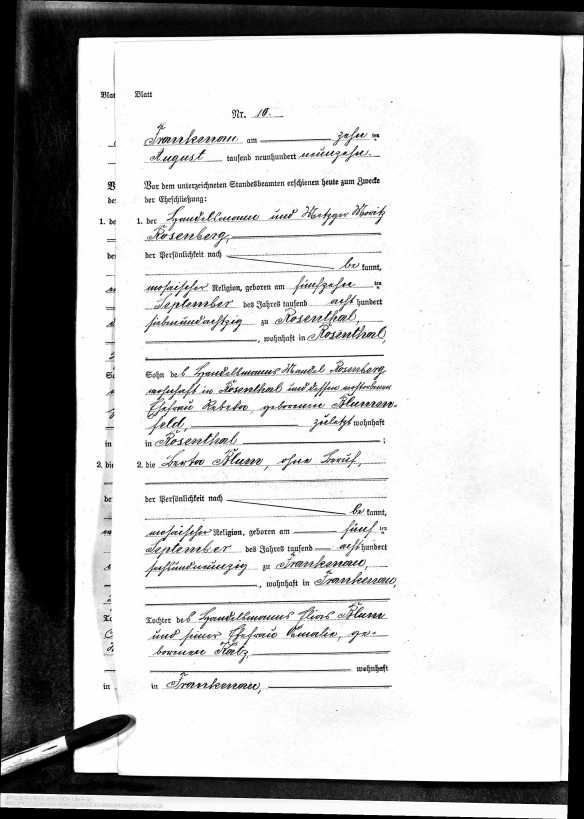 Blatt Blatt
Nr. 10.
Frankenau am zehn ten
August tausend neunhundert neunzehn.
Vor dem unterzeichneten Standesbeamten erschienen heute zum Zwecke
der Eheschließung:
1. de 1. der Handelsmann und Metzger Moritz
Rosenberg,
der der Persönlichkeit nach
be kannt,
mosaischer Religion, geboren am fünfzehn ten
September des Jahres tausend acht hundert
siebenundachtzig zu Rosenthal,
, wohnhaft in Rosenthal,
Sohn des Handelsmanns Mendel Rosenberg,
wohnhaft in Rosenthal und dessen verstorbenen
Ehefrau Rebeka, geborenen Blumen-
feld, zuletzt wohnhaft
in in Rosenthal ;
2. die 2. die Berta Blum, ohne Beruf,
der der Persönlichkeit nach
be kannt,
mosaischer Religion, geboren am fünf ten
September des Jahres tausend acht hundert
sechsundneunzig zu Frankenau,
, wohnhaft in Frankenau,
Tochter des Handelsmanns Elias Blum
und seiner Ehefrau Amalie, ge-
borenen Katz,
wohnhaft
in in Frankenau,